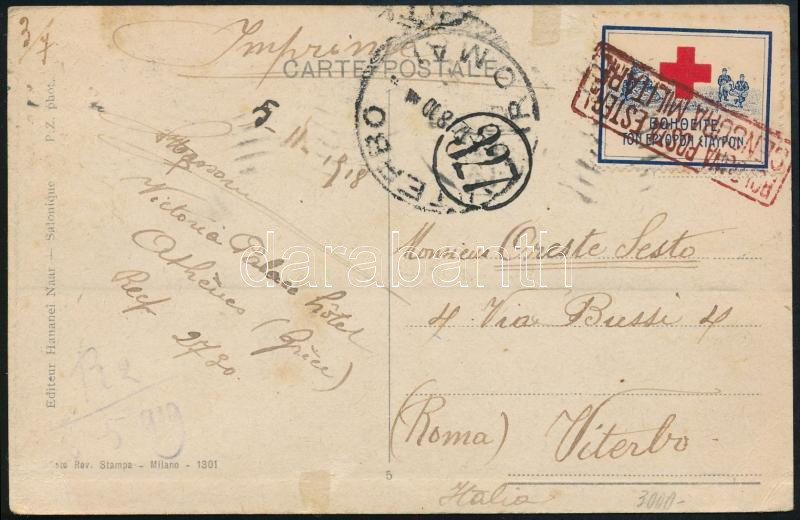 3/7
Imprimé
CARTE POSTALE
ΒΟΗΘΕΙΤΕ
ΤΟΝ ΕΡΥΘΡΟΝ ΣΤΑΥΡΟΝ
BOLOGNA POSTA ESTERA
CENSURA MILITARE
VITERBO
ROMA
5-11-1918
Victoria Palace hôtel
Athènes (Grèce)
2730.
Monsieur Oreste Sesto
4 Via Bussi 4
(Roma) Viterbo
Italia
3000-
Editeur Hananel Naar — Salonique P.Z. phot.
Rev. Stampa - Milano - 1301
5
darabanth